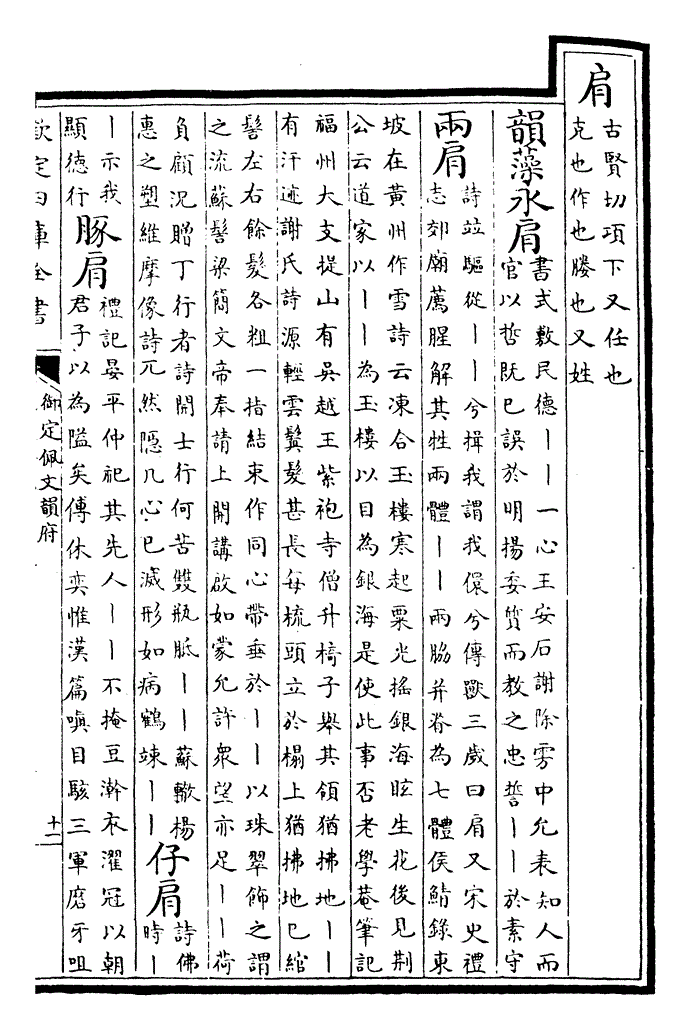 肩
古賢切項下又任也
克也作也勝也又姓
韻藻永肩
書式敷民德丨丨一心王安石謝除雱中允表知人而
官以哲既已誤於明揚委質而教之忠誓丨丨於素守
兩肩
詩竝驅從丨丨兮揖我謂我儇兮傳獸三歲曰肩又宋史禮
志郊廟薦腥解其牲兩體丨丨兩脇并脊為七體侯鯖錄東
坡在黃州作雪詩云凍合玉樓寒起粟光搖銀海眩生花後見荆
公云道家以丨丨為玉樓以目為銀海是使此事否老學菴筆記
福州大支提山有吳越王紫袍寺僧升椅子舉其領猶拂地丨丨
有汗迹謝氏詩源輕雲鬒髮甚長每梳頭立於榻上猶拂地已綰
髻左右餘髮各粗一指結束作同心帶垂於丨丨以珠翠飾之謂
之流蘇髻梁簡文帝奉請上開講啟如蒙允許眾望亦足丨丨荷
負顧況贈丁行者詩開士行何苦雙瓶胝丨丨蘇轍楊
惠之塑維摩像詩兀然隱几心已滅形如病鶴竦丨丨
仔肩
詩佛
時丨
丨示我
顯德行
豚肩
禮記晏平仲祀其先人丨丨不掩豆澣衣濯冠以朝
君子以為隘矣傅休奕惟漢篇嗔目駭三軍磨牙咀
欽定四庫全書
御定佩文韻府
十二